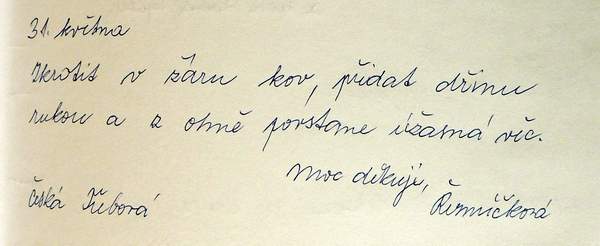 31. května
Zkrotit v žáru kov, přidat dřinu
rukou a z ohně povstane úžasná věc.
Moc děkuji,
Česká Třebová Řezníčková